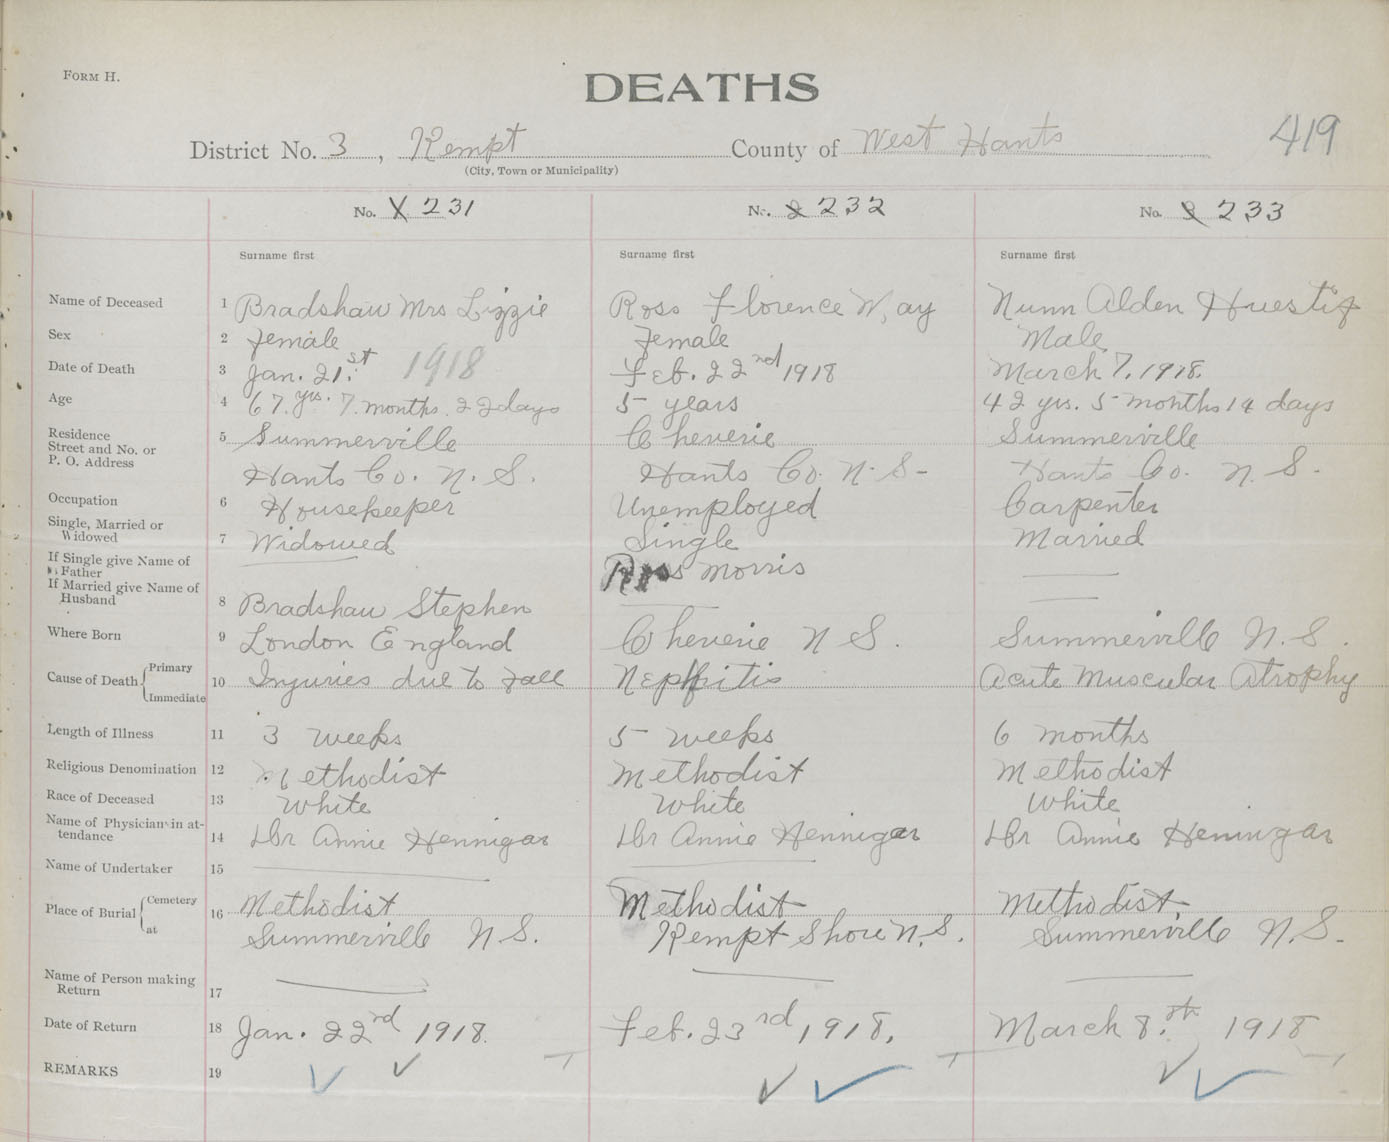 FORM H.
DEATHS
419
District No. 3, Kempt County of West Hants
(City, Town or Municipality)
No. 1 231 No. 2 232 No. 3 233
Surname first Surname first Surname first
Name of Deceased 1 Bradshaw Mrs Lizzie Ross Florence W, ay Nunn Alden Huestis
Sex 2 Female Female Male
Date of Death 3 Jan. 21st 1918 Feb. 22nd 1918 March 7, 1918.
Age 4 67 yrs. 7 months 22 days 5 years 42 yrs. 5 months 14 days
Residence Street and No. or P. O. Address 5 Summerville Cheverie Summerville
Hants Co. N. S. Hants Co. N. S- Hants Co. N. S.
Occupation 6 Housekeeper Unemployed Carpenter
Single, Married or Widowed 7 Widowed Single Married
If Single give Name of Father Ross Morris
If Married give Name of Husband 8 Bradshaw Stephen
Where Born 9 London England Cheverie N S. Summerville N. S.
Cause of Death { Primary Immediate 10 Injuries due to Fall Nephritis Acute Muscular Atrophy
Length of Illness 11 3 weeks 5 weeks 6 months
Religious Denomination 12 Methodist Methodist Methodist
Race of Deceased 13 White White White
Name of Physician in attendance 14 Dr Annie Hennigar Dr Annie Hennigar Dr Annie Hennigar
Name of Undertaker 15
Place of Burial { Cemetery at 16 Methodist Methodist Methodist
Summerville N S. Kempt Shore N. S. Summerville N. S.
Name of Person making Return 17
Date of Return 18 Jan. 22nd 1918. Feb. 23rd, 1918. March 8th 1918
REMARKS 19